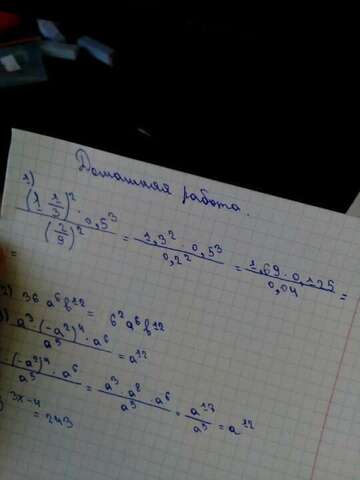 Домашняя работа.
1)
(1 1/3)² · 0,5³ / (2/9)² = 1,3² · 0,5³ / 0,2² = 1,69 · 0,125 / 0,04 =
=
2) 36 a⁶b¹² = 6² a⁶b¹²
) a³ · (-a²)⁴ · a⁶ / a⁵ = a¹²
· (-a²)⁴ · a⁶ / a⁵ = a³ · a⁸ · a⁶ / a⁵ = a¹⁷ / a⁵ = a¹²
) 3x-4
= 243